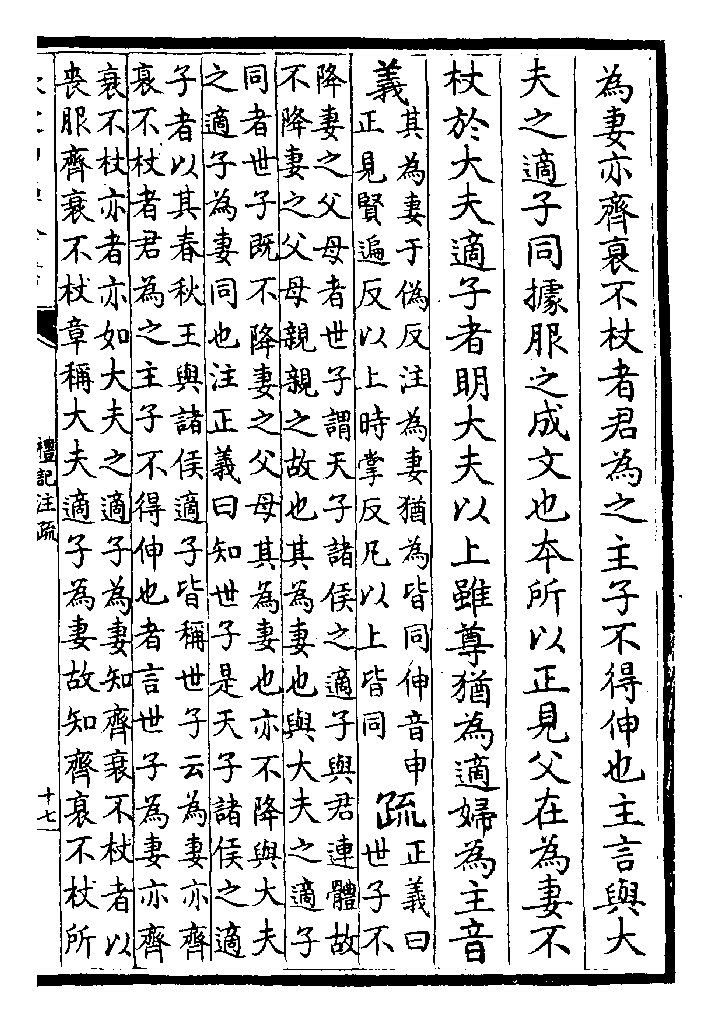 為妻亦齊衰不杖者君為之主子不得伸也主言與大
夫之適子同據服之成文也本所以正見父在為妻不
杖於大夫適子者明大夫以上雖尊猶為適婦為主音
義其為妻于偽反注為妻猶為皆同伸音申
正見賢遍反以上時掌反凡以上皆同
疏正義曰
世子不
降妻之父母者世子謂天子諸侯之適子與君連體故
不降妻之父母親親之故也其為妻也與大夫之適子
同者世子既不降妻之父母其為妻也亦不降與大夫
之適子為妻同也注正義曰知世子是天子諸侯之適
子者以其春秋王與諸侯適子皆稱世子云為妻亦齊
衰不杖者君為之主子不得伸也者言世子為妻亦齊
衰不杖亦者亦如大夫之適子為妻知齊衰不杖者以
喪服齊衰不杖章稱大夫適子為妻故知齊衰不杖所
禮記注疏
十七